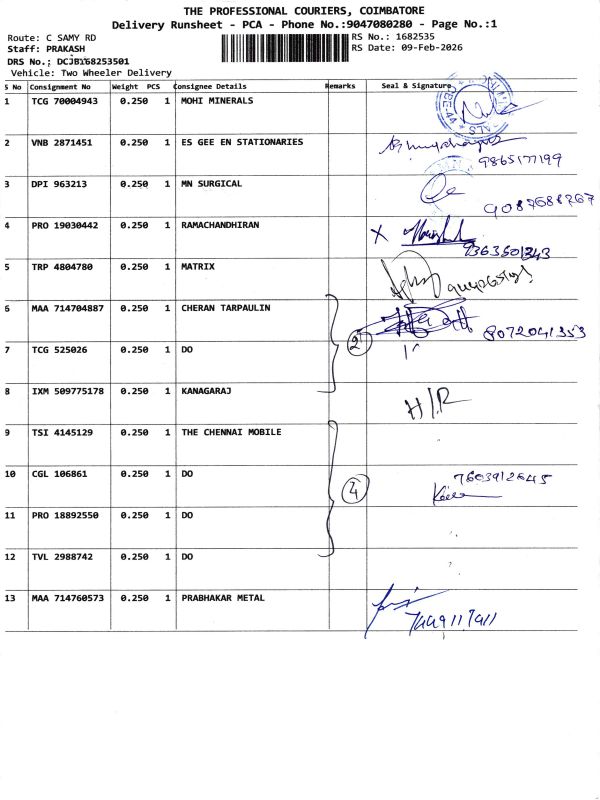 THE PROFESSIONAL COURIERS, COIMBATORE
Delivery Runsheet - PCA - Phone No.:9047080280 - Page No.:1
Route: C SAMY RD
RS No.: 1682535
Staff: PRAKASH
RS Date: 09-Feb-2026
DRS No.; DCJB168253501
Vehicle: Two Wheeler Delivery
S No Consignment No Weight PCS Consignee Details Remarks Seal & Signature
1 TCG 70004943 0.250 1 MOHI MINERALS
2 VNB 2871451 0.250 1 ES GEE EN STATIONARIES
3 DPI 963213 0.250 1 MN SURGICAL 9087688767
4 PRO 19030442 0.250 1 RAMACHANDHIRAN X 9363501343
5 TRP 4804780 0.250 1 MATRIX
6 MAA 714704887 0.250 1 CHERAN TARPAULIN 8072041353
7 TCG 525026 0.250 1 DO 2
8 IXM 509775178 0.250 1 KANAGARAJ H/R
9 TSI 4145129 0.250 1 THE CHENNAI MOBILE
10 CGL 106861 0.250 1 DO 4 7603912645
11 PRO 18892550 0.250 1 DO
12 TVL 2988742 0.250 1 DO
13 MAA 714760573 0.250 1 PRABHAKAR METAL